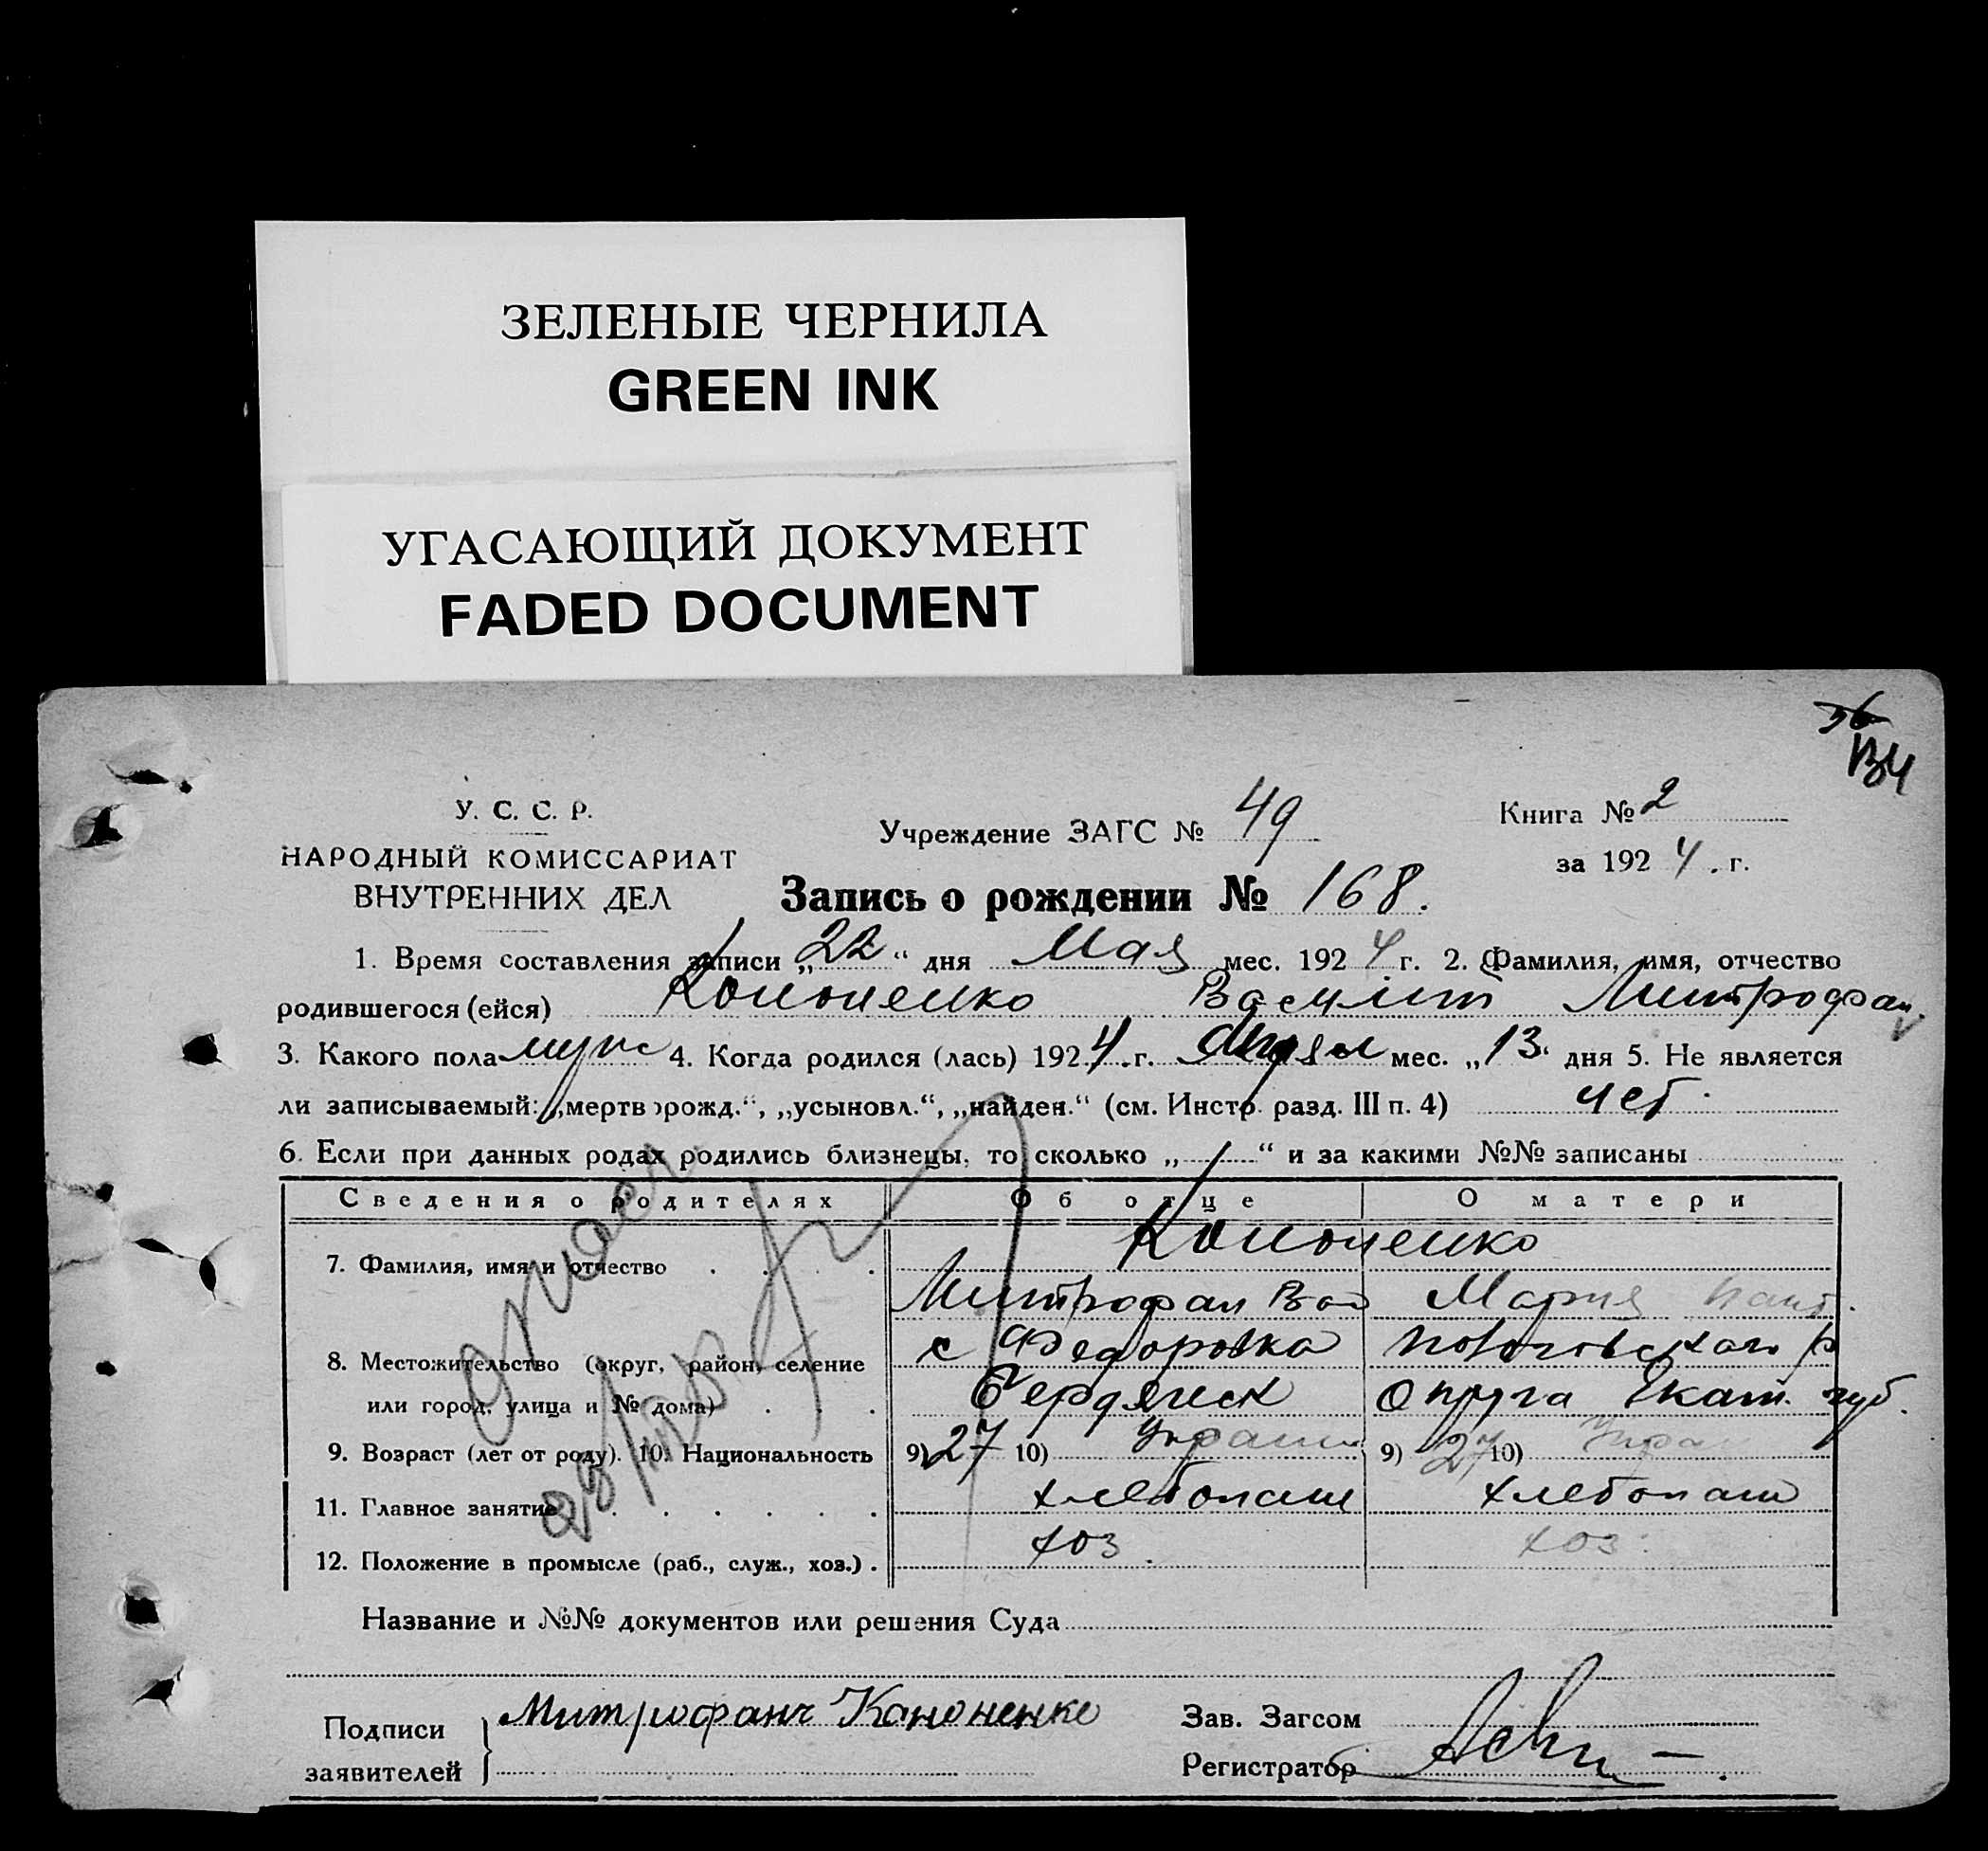 ЗЕЛЕНЫЕ ЧЕРНИЛА
GREEN INK
УГАСАЮЩИЙ ДОКУМЕНТ
FADED DOCUMENT
36
134
У. С. С. Р.
НАРОДНЫЙ КОМИССАРИАТ
ВНУТРЕННИХ ДЕЛ
Учреждение ЗАГС № 49
Книга № 2
за 1924 г.
Запись о рождении № 168.
1. Время составления записи „22“ дня Мая мес. 1924 г. 2. Фамилия, имя, отчество
родившегося (ейся) Кононенко Василий Митрофан.
3. Какого пола муж 4. Когда родился (лась) 1924 г. мес. „13“ дня 5. Не является
ли записываемый: „мертворожд.“, „усыновл.“, „найден.“ (см. Инстр. разд. III п. 4) нет.
6. Если при данных родах родились близнецы, то сколько „ “ и за какими №№ записаны
Сведения о родителях Об отце О матери
7. Фамилия, имя и отчество Кононенко
Митрофан Вас Мария
8. Местожительство (округ, район, селение с Федоровка Пологовского р
или город, улица и № дома) Бердянск округа Екат. губ.
9. Возраст (лет от роду). 10. Национальность 9) 27 10) Украин 9) 27 10) Укра
11. Главное занятие хлебопаш хлебопаш
12. Положение в промысле (раб., служ., хоз.) хоз. хоз.
Название и №№ документов или решения Суда
Подписи заявителей Митрофанъ Кононенко
Зав. Загсом
Регистратор